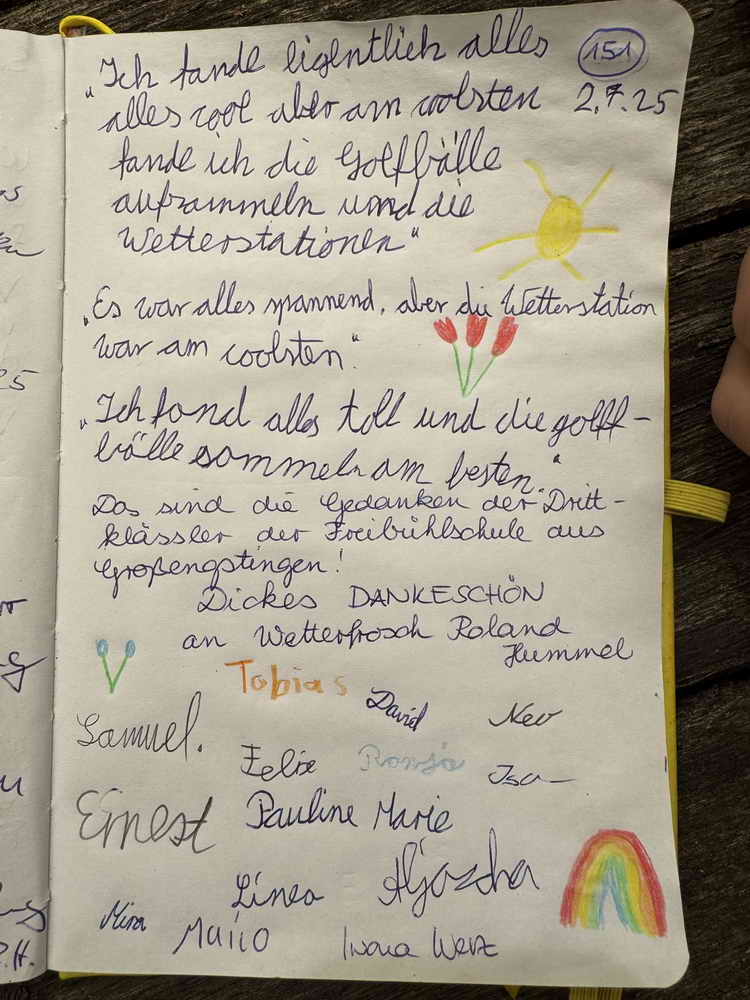 „Ich fande eigentlich alles
151
alles cool aber am coolsten
2.7.25
fande ich die Golfbälle
aufsammeln und die
Wetterstationen“
„Es war alles spannend, aber die Wetterstation
war am coolsten“.
„Ich fand alles toll und die golff-
bälle sammeln am besten.“
Das sind die Gedanken der Dritt-
klässler der Freibühlschule aus
Großengstingen!
Dickes DANKESCHÖN
an Wetterfrosch Roland
Hummel
Tobias
David
Samuel.
Felix
Ronja
Ernest
Pauline Marie
Linea
Aljoscha
Mira